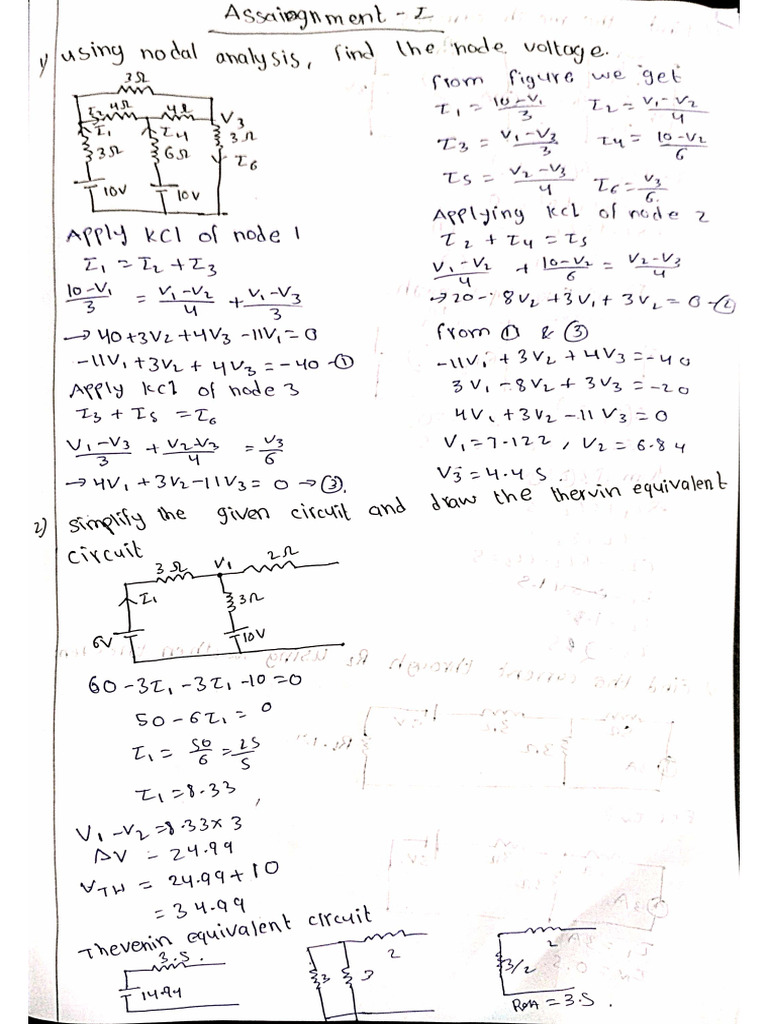 Assaingnment - I
1) using nodal analysis, find the node voltage.
3Ω
I2 4Ω 4Ω V3
I1 I4 3Ω
3Ω 6Ω I6
10V 10V
from figure we get
I1 = 10-V1/3 I2 = V1-V2/4
I3 = V1-V3/3 I4 = 10-V2/6
I5 = V2-V3/4 I6 = V3/6
Apply KCl of node 1
I1 = I2 + I3
10-V1/3 = V1-V2/4 + V1-V3/3
→ 40+3V2+4V3-11V1=0
-11V1+3V2+4V3=-40 -①
Apply KCl of node 3
I3 + I5 = I6
V1-V3/3 + V2-V3/4 = V3/6
→ 4V1+3V2-11V3=0 →③.
Applying KCl of node 2
I2 + I4 = I5
V1-V2/4 + 10-V2/6 = V2-V3/4
→ 20-8V2+3V1+3V2=0-②
from ① & ③
-11V1+3V2+4V3=-40
3V1-8V2+3V3=-20
4V1+3V2-11V3=0
V1=7.122, V2=6.84
V3=4.45.
2) simplify the given circuit and draw the thervin equivalent
circuit
3Ω V1 2Ω
I1 3Ω
6V 10V
60-3I1-3I1-10=0
50-6I1=0
I1=50/6=25/5
I1=8.33,
V1-V2=8.33x3
ΔV = 24.99
VTH = 24.99+10
= 34.99
Thevenin equivalent circuit
3.5.
14.94
3 3 2
2
3/2
RTH = 3.5.